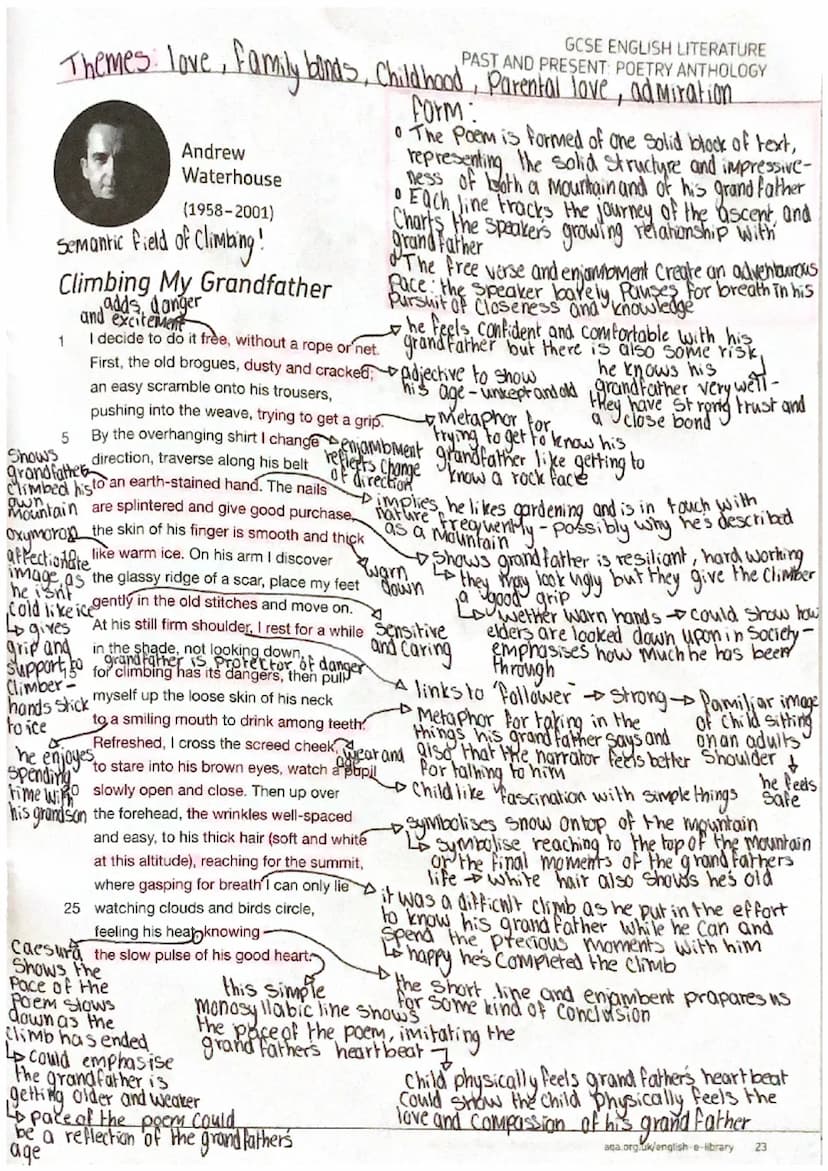 GCSE ENGLISH LITERATURE
PAST AND PRESENT: POETRY ANTHOLOGY
Themes: love, family bonds, Childhood, Parental love, admiration
Andrew
Waterhouse
(1958–2001)
Semantic field of Climbing!
form:
The Poem is formed of one solid block of text,
representing the solid structure and impressive-
ness of both a Mountain and of his grandfather
Each line tracks the journey of the ascent, and
Charts the speakers growing relationship with
grandfather
The free verse and enjambment create an adventurous
Pace: the speaker barely Pauses for breath in his
Pursuit of closeness and knowledge
Climbing My Grandfather
adds danger
and excitement
1 I decide to do it free, without a rope or net.
First, the old brogues, dusty and cracked;
an easy scramble onto his trousers,
pushing into the weave, trying to get a grip.
5 By the overhanging shirt I change
direction, traverse along his belt
to an earth-stained hand. The nails
are splintered and give good purchase,
the skin of his finger is smooth and thick
like warm ice. On his arm I discover
the glassy ridge of a scar, place my feet
gently in the old stitches and move on.
At his still firm shoulder, I rest for a while
in the shade, not looking down,
grandfather is protector of danger
15 for climbing has its dangers, then pull
myself up the loose skin of his neck
to a smiling mouth to drink among teeth.
Refreshed, I cross the screed cheek,
to stare into his brown eyes, watch a pupil
20 slowly open and close. Then up over
the forehead, the wrinkles well-spaced
and easy, to his thick hair (soft and white
at this altitude), reaching for the summit,
where gasping for breath I can only lie
25 watching clouds and birds circle,
feeling his heat, knowing
the slow pulse of his good heart.
he feels confident and comfortable with his
grandfather but there is also some risk
he knows his
grandfather very well -
they have strong trust and
a close bond
adjective to show
his age - unkept and old
Metaphor for
trying to get to know his
grandfather like getting to
know a rock face
enjambment
reflects change
of direction
Shows
grandfather
climbed his
own
Mountain
implies he likes gardening and is in touch with
nature frequently - possibly why he's described
as a Mountain
oxymoron
affectionate
image as
he isnt
cold like ice
↳ gives
grip and
support to
climber -
hands stick
to ice
warn
down
Shows grandfather is resiliant, hard working
↳ they may look ugly but they give the climber
a good grip
↳ wether warn hands → could show how
elders are looked down upon in society -
emphasises how much he has been
through
Sensitive
and caring
links to 'Follower' → strong → familiar image
of child sitting
on an adults
shoulder
↓
he feels
safe
Metaphor for taking in the
things his grandfather says and
also that the narrator feels better
for talking to him
he enjoyes
spending
time with
his grandson
wear and
age
Child like fascination with simple things
symbolises snow ontop of the mountain
↳ symbolise reaching to the top of the mountain
or the final moments of the grandfathers
life → white hair also shows he's old
it was a difficult climb as he put in the effort
to know his grandfather while he can and
spend the precious moments with him
↳ happy he's completed the climb
Caesura
shows the
pace of the
poem slows
down as the
climb has ended
↳ could emphasise
the grandfather is
getting older and weaker
↳ pace of the poem could
be a reflection of the grandfathers
age
the short line and enjambent prapares us
for some kind of conclusion
this simple
monosyllabic line shows
the pace of the poem, imitating the
grandfather's heartbeat
child physically feels grandfather's heartbeat
could show the child physically feels the
love and compassion of his grandfather
aqa.org.uk/english-e-library 23